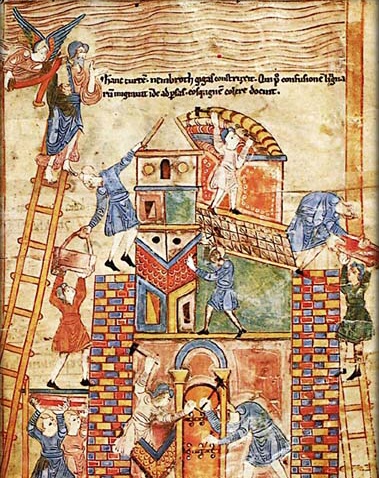 hanc turrē nembroth gigas construxit. Qui p̄ confusionē lingua
rū migrauit inde ad psas. eosq; ignē colere docuit.